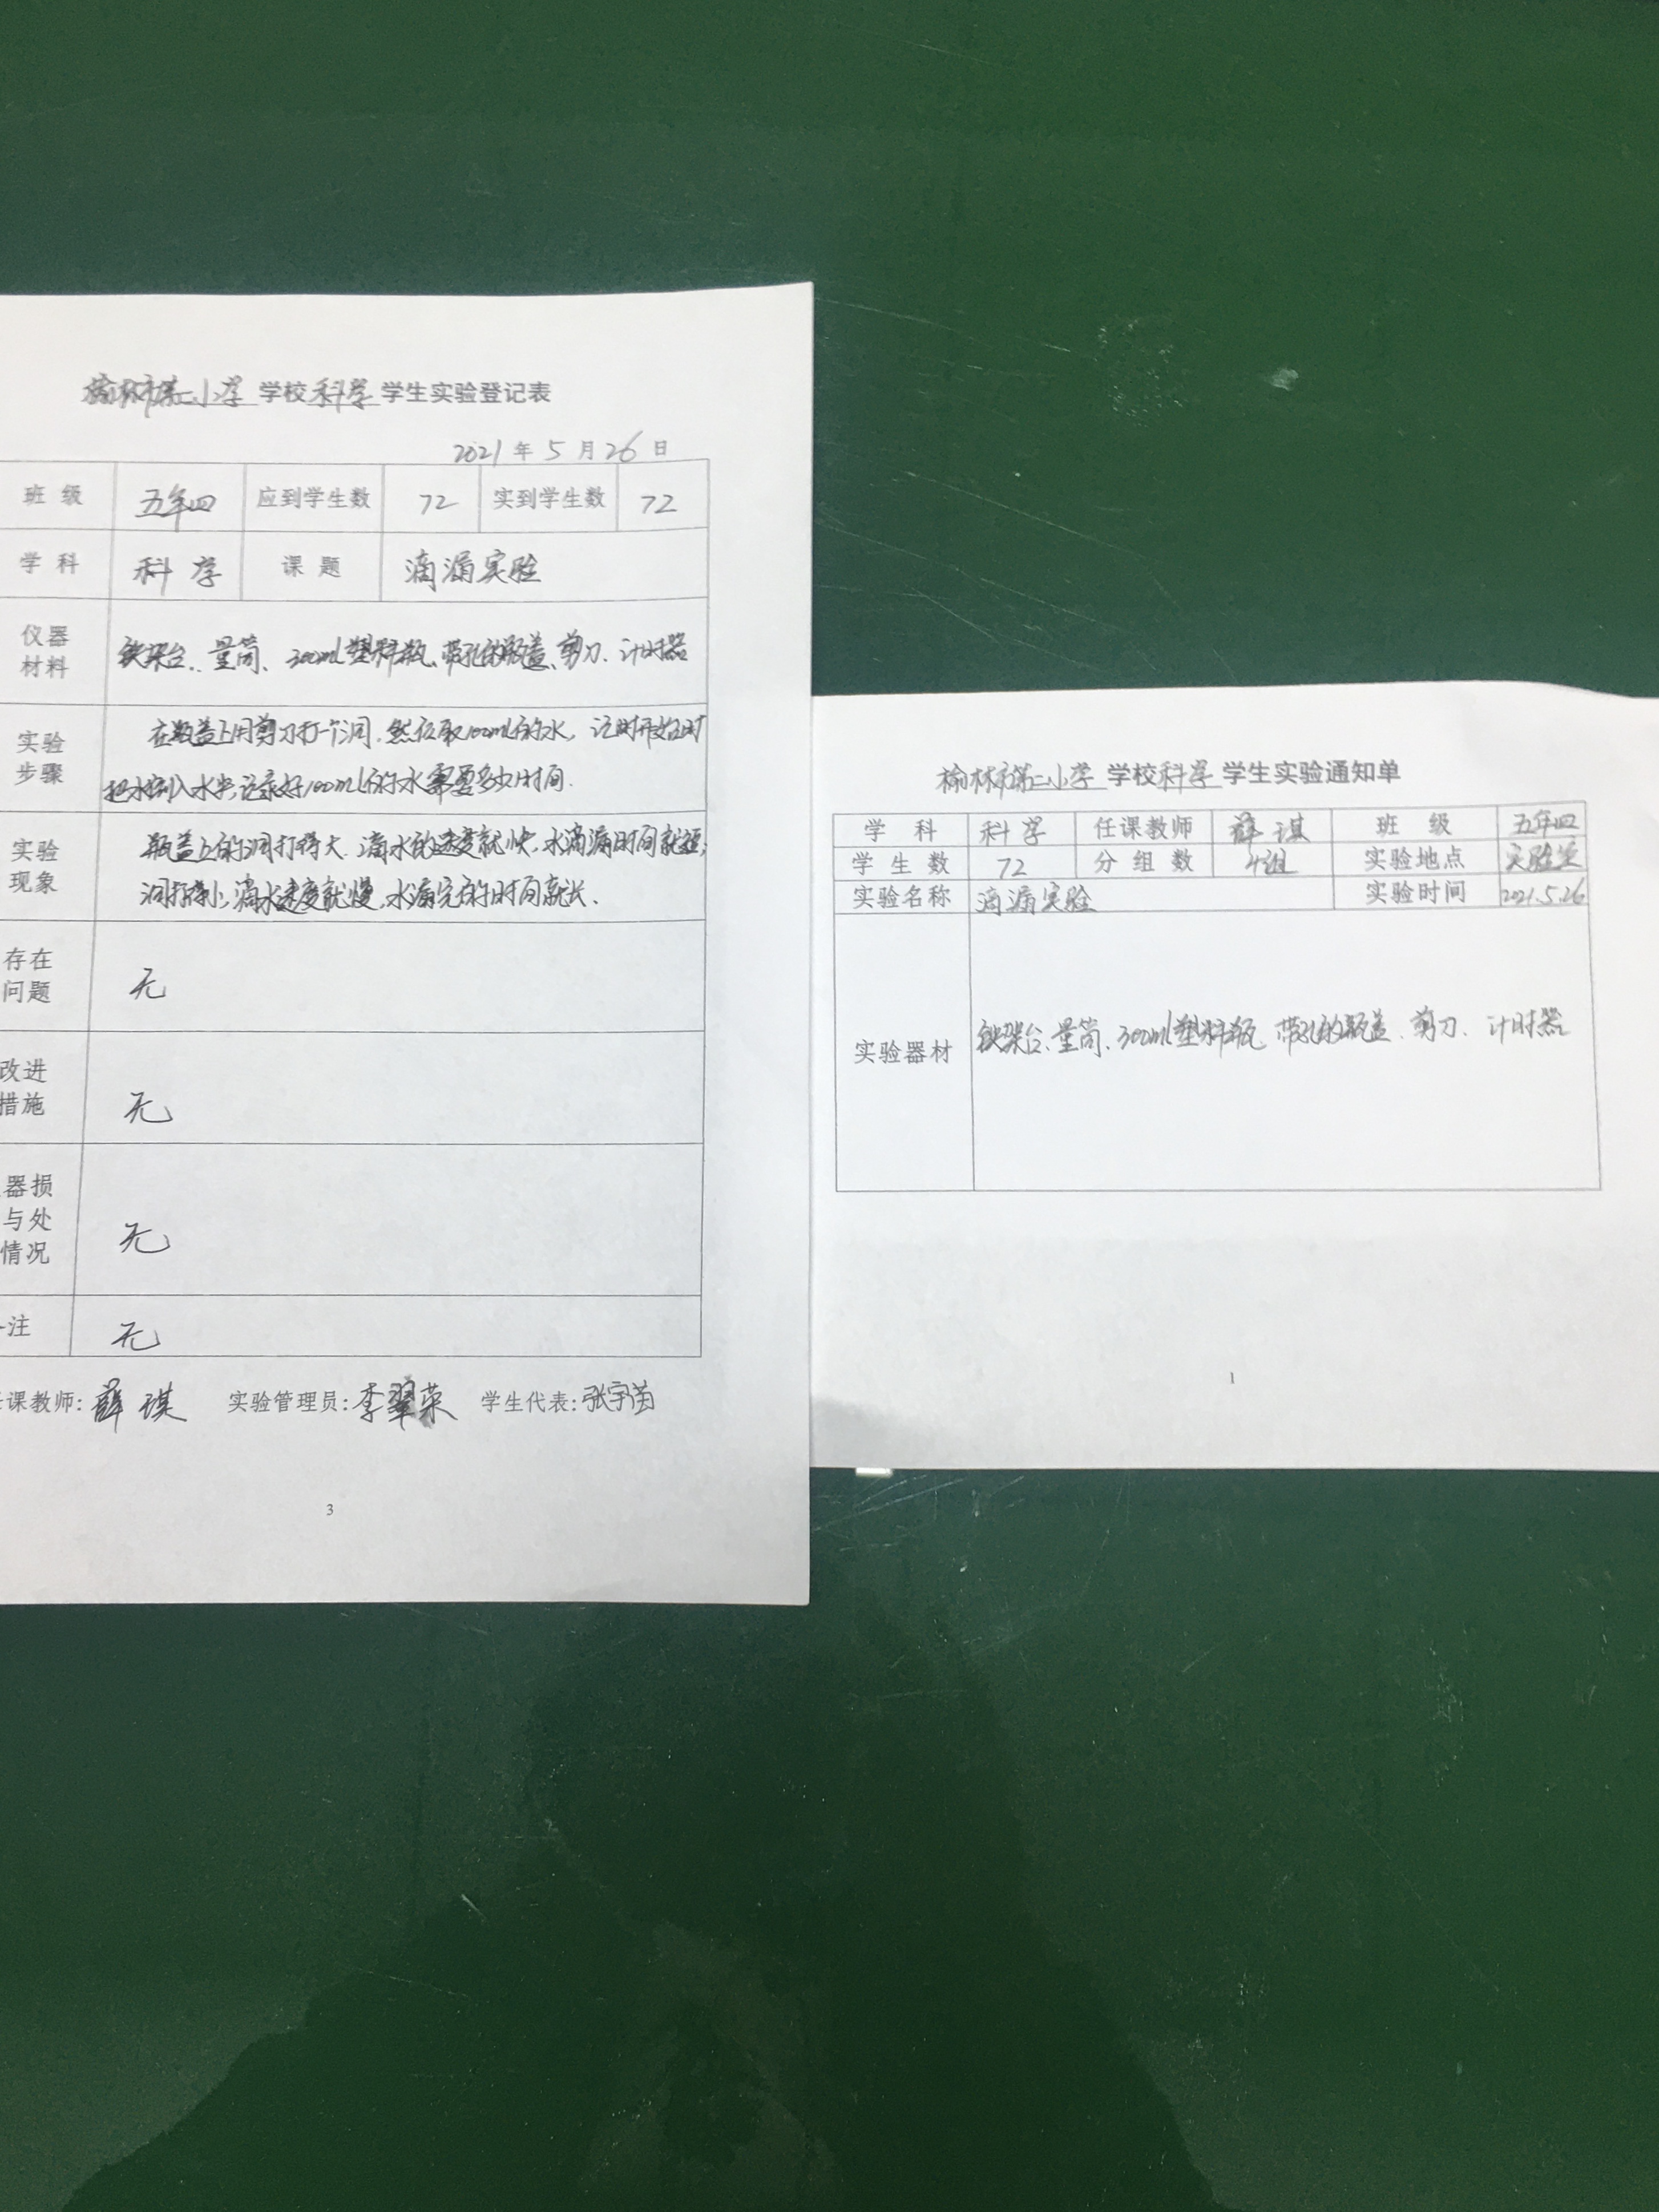 榆林市第二小学 学校科学 学生实验登记表
2021 年 5 月 26 日
班 级 五年四 应到学生数 72 实到学生数 72
学 科 科学 课 题 滴漏实验
仪器
材料
铁架台、量筒、300ml塑料瓶、带孔的瓶盖、剪刀、计时器
实验
步骤
在瓶盖上用剪刀打一个洞,然后取100ml的水,计时开始时
把水倒入水中,记录好100ml的水需要多少时间.
实验
现象
瓶盖上的洞打得大,滴水的速度就快,水滴漏时间就短;
洞打得小,滴水速度就慢,水漏完的时间就长.
存在
问题
无
改进
措施
无
器损
与处
情况
无
注 无
课教师: 薛琪 实验管理员: 李翠荣 学生代表: 张宇
3
榆林市第二小学 学校科学 学生实验通知单
学 科 科学 任课教师 薛琪 班 级 五年四
学 生 数 72 分 组 数 4组 实验地点 实验室
实验名称 滴漏实验 实验时间 2021.5.26
实验器材 铁架台、量筒、300ml塑料瓶、带孔的瓶盖、剪刀、计时器
1